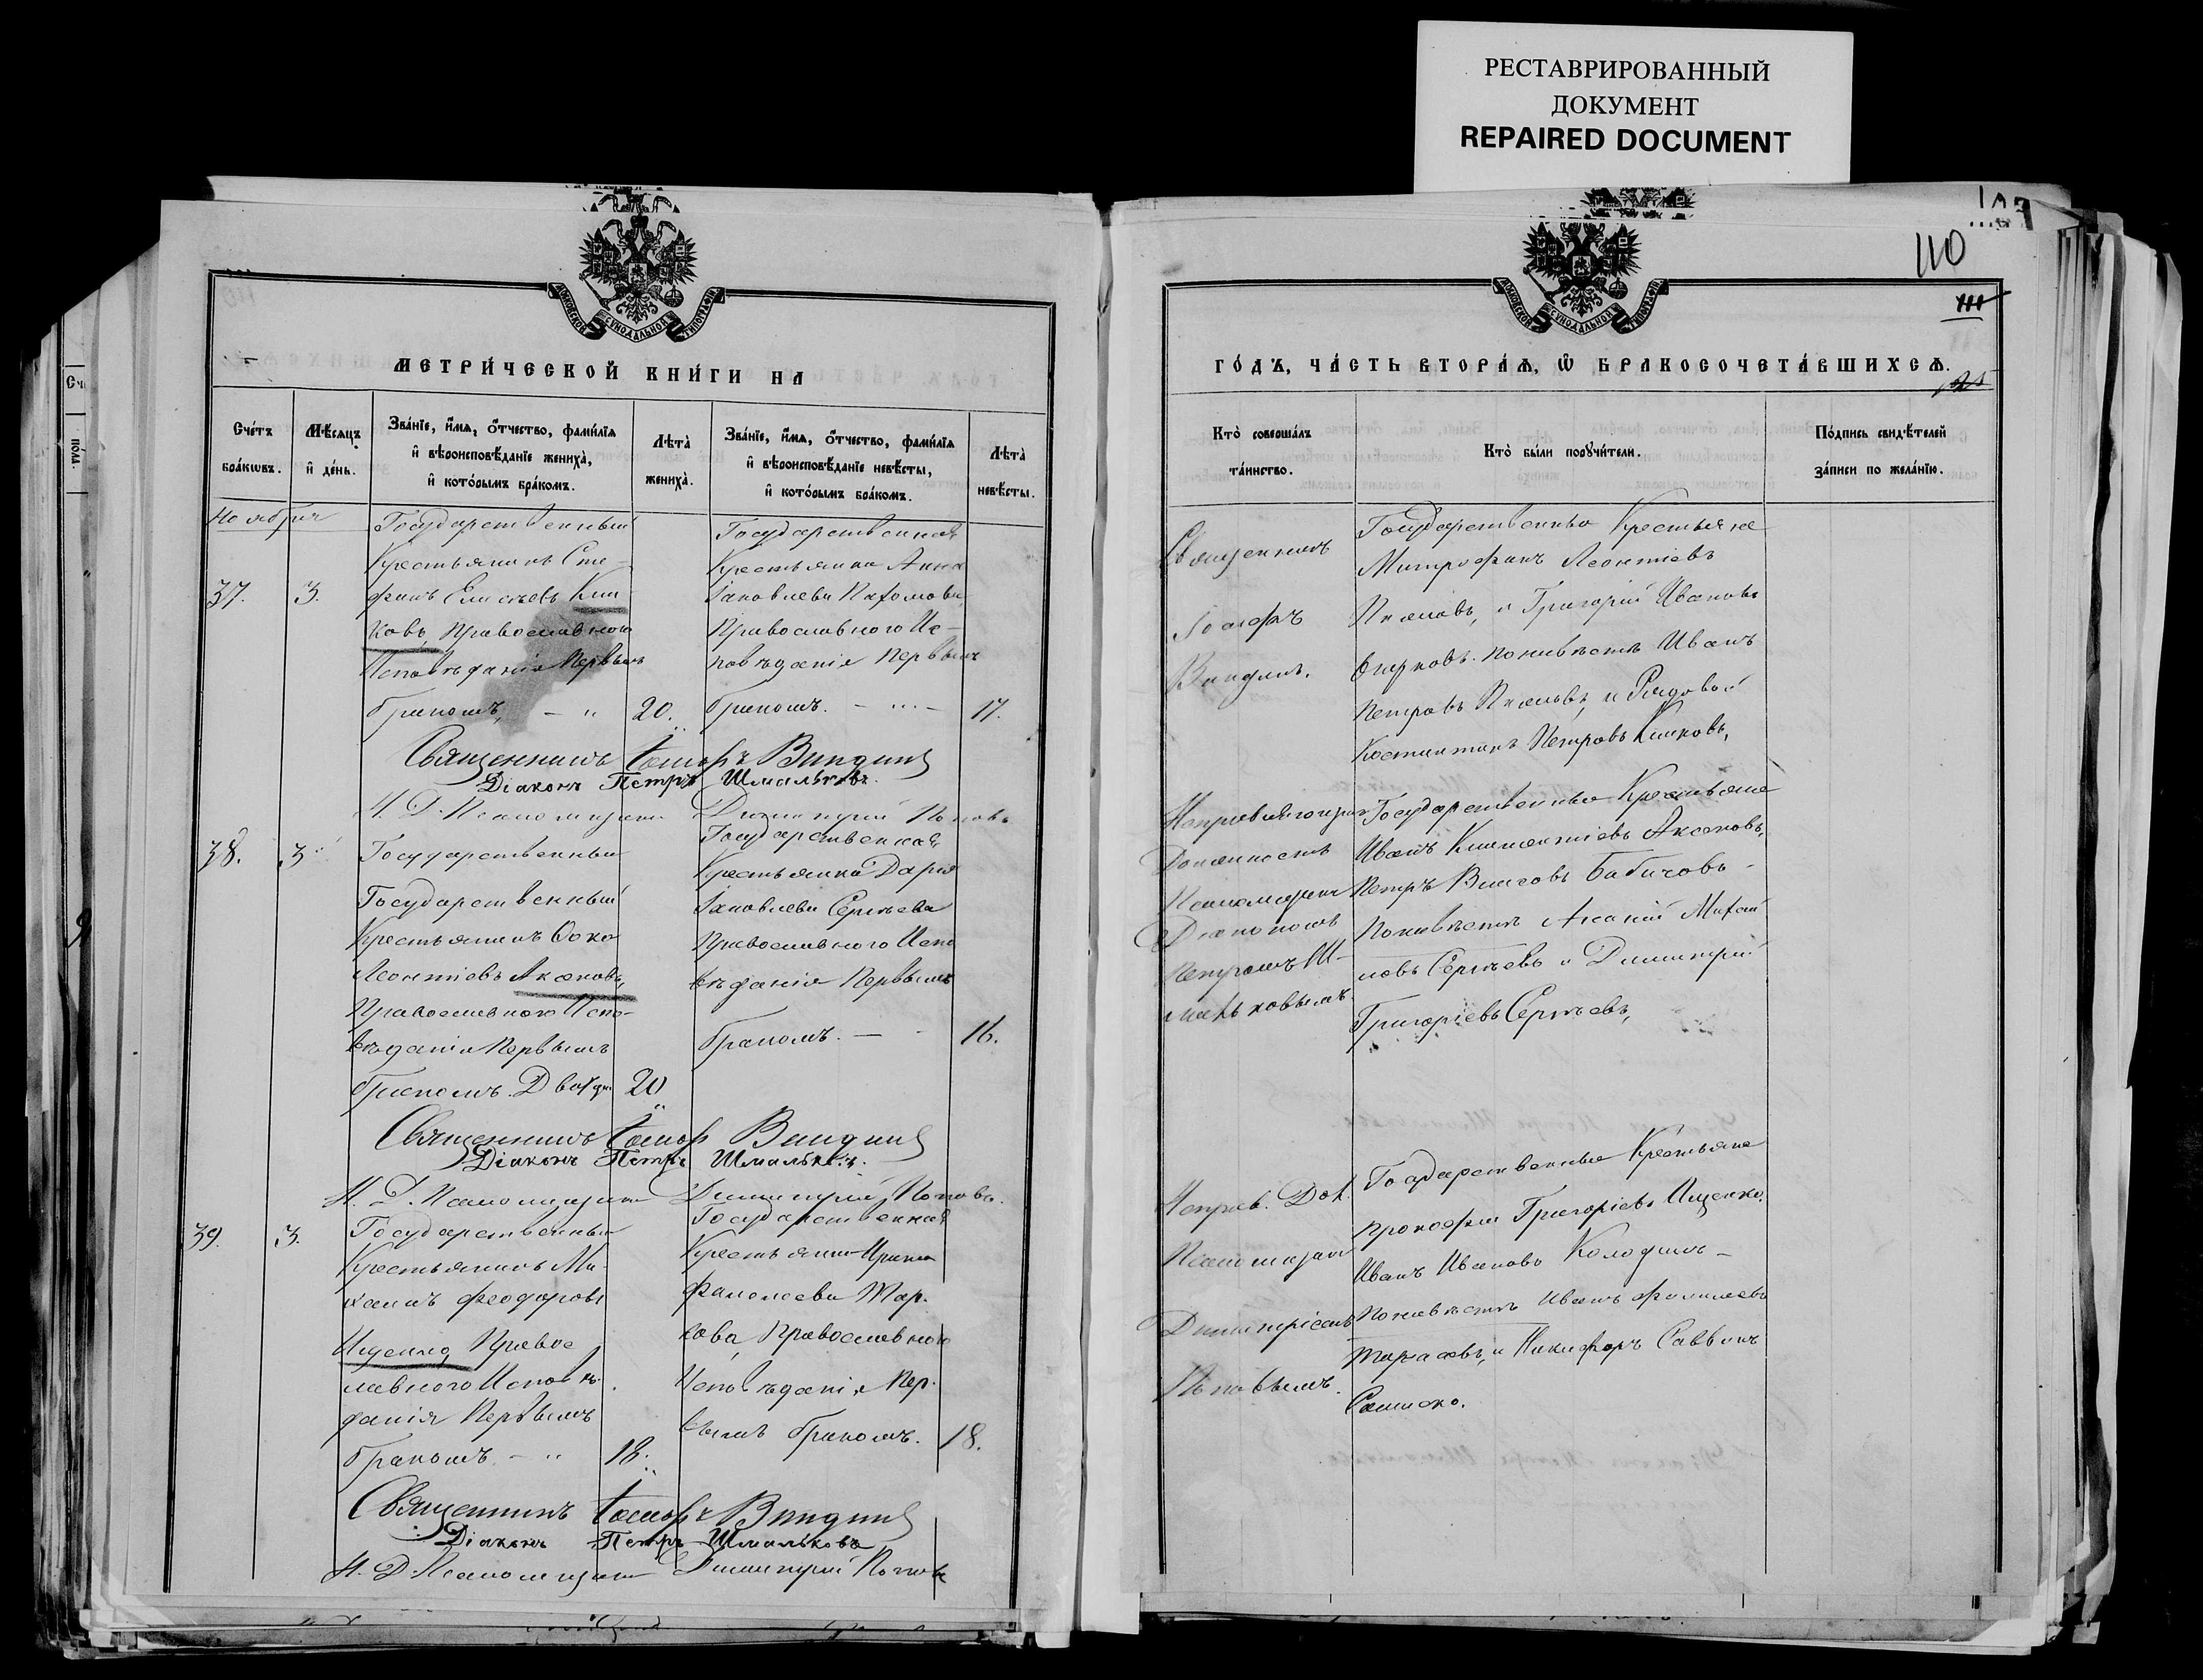 РЕСТАВРИРОВАННЫЙ
ДОКУМЕНТ
REPAIRED DOCUMENT
110
МЕТРИ́ЧЕСКОЙ КНИ́ГИ НА
Сче́тъ бра́кѡвъ.
Мѣ́сяцъ и҆ де́нь.
Зва́нїе, и҆́мѧ, ѻ҆́тчество, фами́лїѧ и҆ вѣроисповѣ́данїе жениха̀, и҆ кото́рымъ бра́комъ.
Лѣта̀ жениха̀.
Зва́нїе, и҆́мѧ, ѻ҆́тчество, фами́лїѧ и҆ вѣроисповѣ́данїе невѣ́сты, и҆ кото́рымъ бра́комъ.
Лѣта̀ невѣ́сты.
Ноября
37.
3.
Государственный
Крестьянинъ Сте-
фанъ Елисѣевъ Кли-
ковъ, Православного
Исповѣданія Первымъ
бракомъ,
20.
Государственная
Крестьянка Анна
Іаковлева Пахомова
Православного Ис-
повѣданія Первымъ
бракомъ.
17.
Священникъ Іосифъ Виндинъ
Діаконъ Петръ Шмальковъ.
И. Д. Псаломщика Димитрій Поповъ
38.
3
Государственный
Государственный
Крестьянинъ Фока
Леонтіевъ Аксеновъ,
Православного Испо-
вѣданія Первымъ
бракомъ.
20
Государственная
Крестьянка Дарья
Іаковлева Сергѣева
Православного Испо
вѣданія Первымъ
бракомъ.
16.
Священникъ Іосифъ Виндинъ
Діаконъ Петръ Шмальковъ.
И. Д. Псаломщика Димитрій Поповъ.
39.
3.
Государственный
Крестьянинъ Ми-
хаилъ Феодоровъ
Ищенко Правос
лавного Исповѣ-
данія Первымъ
бракомъ.
18.
Государственная
Крестьянка Ирина
Православного
Исповѣданія Пер-
вымъ бракомъ.
18.
Священникъ Іосифъ Виндинъ
Діаконъ Петръ Шмальковъ
И. Д. Псаломщика Димитрій Поповъ
ГО́ДЪ, ЧА́СТЬ ВТОРА́Ѧ, Ѽ БРАКОСОЧЕТА́ВШИХСѦ.
Кто̀ соверша́лъ та́инство.
Кто̀ бы́ли порꙋчи́тели.
По́дпись свидѣ́телей за́писи по жела́нїю.
Священникъ
Іосифъ
Виндинъ.
Государственные Крестьяне
Митрофанъ Леонтіевъ
и Григорій Ивановъ
по невѣстѣ Иванъ
Петровъ и Рядовой
Костантинъ Петровъ Кликовъ,
Исправляющимъ
Должность
Псаломщика
Діакономъ
Петромъ Ш-
мальковымъ.
Государственные Крестьяне
Иванъ Климентіевъ Аксеновъ,
Петръ Власовъ Бабичовъ -
По невѣстѣ Михаи
ловъ Сергѣевъ и Димитрій
Григоріевъ Сергѣевъ,
Исправ. Дол.
Псаломщика
Димитріемъ
Поповымъ.
Государственные Крестьяне
Прокофій Григоріевъ Ищенко,
Иванъ Ивановъ
По невѣстѣ Иванъ
и Никифоръ Саввинъ